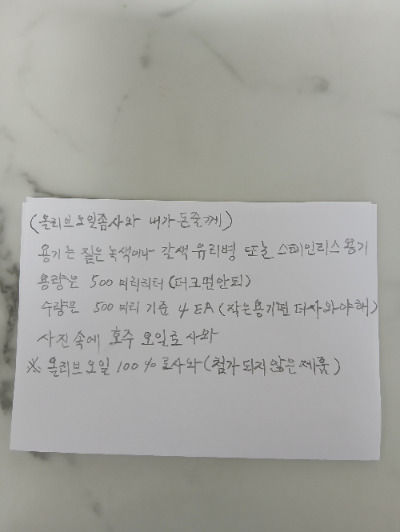 (올리브오일좀사와 내가 돈줄께)
용기는 짙은 녹색이나 갈색 유리병 또는 스테인리스 용기
용량은 500 미리리터 (더크면안되)
수량은 500 미리 기준 4 EA (작은용기면 더사와야해)
사진속에 호주 오일로 사와
※ 올리브오일 100% 로사와 (첨가 되지않은 제품)